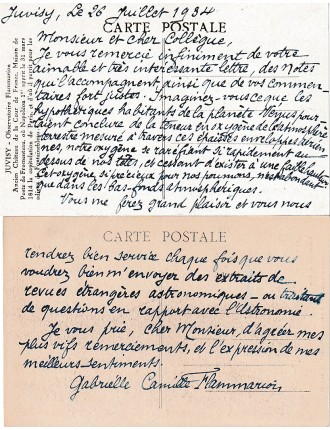 Juvisy, le 26 Juillet 1934
CARTE POSTALE
Monsieur et cher Collègue,
Je vous remercie infiniment de votre
aimable et très intéressante lettre, des Notes
qui l'accompagnent ainsi que de vos commen-
taires fort justes. Imaginez-vous ce que les
hypothétiques habitants de la planète Vénus pour-
raient conclure de la teneur en oxygène de l'atmosphère
terrestre mesuré à travers ces chaudes enveloppes aérien-
nes, notre oxygène se raréfiant si rapidement au
dessus de nos têtes, et cessant d'exister à une faible hauteur
cet oxygène si précieux pour nos poumons, n'est abondant
que dans les bas-fonds atmosphériques.
Vous me ferez grand plaisir et vous nous
JUVISY - Observatoire Flammarion
CARTE POSTALE
rendrez bien service chaque fois que vous
voudrez bien m'envoyer des extraits de
revues étrangères astronomiques - ou traitant
de questions en rapport avec l'Astronomie.
Je vous prie, cher Monsieur, d'agréer mes
plus vifs remerciements, et l'expression de mes
meilleurs sentiments.
Gabrielle Camille Flammarion